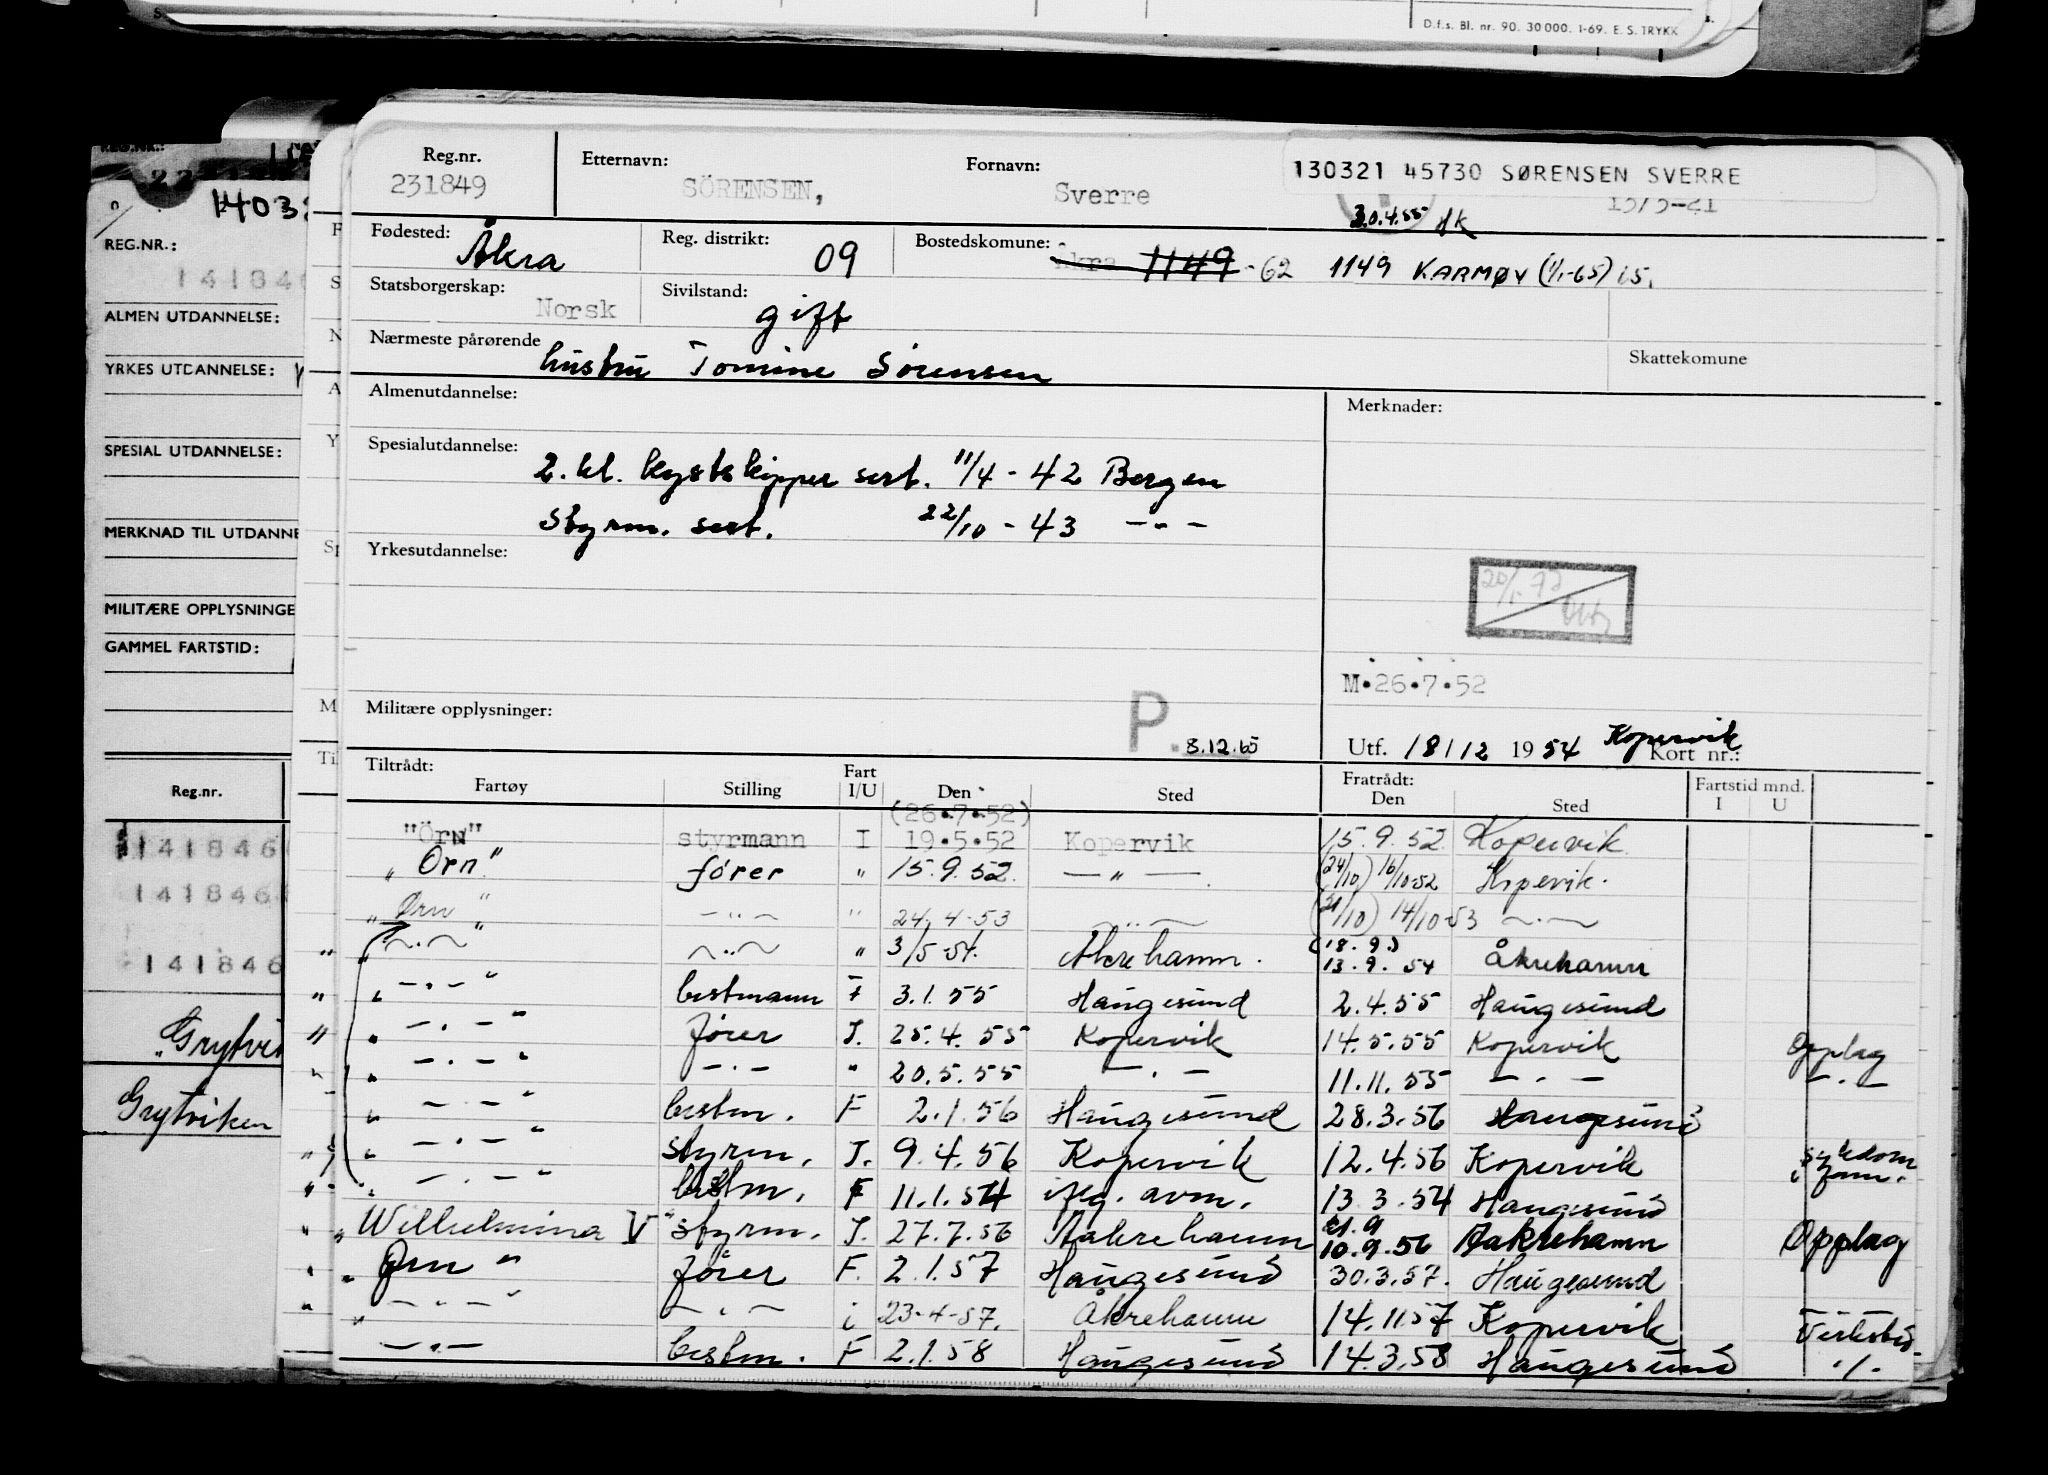 D.f.s. Bl. nr. 90. 30 000. 1-69. E. S. TRYKK
REG.NR.:
141846
ALMEN UTDANNELSE:
YRKES UTDANNELSE:
SPESIAL UTDANNELSE:
MERKNAD TIL UTDANNE
MILITÆRE OPPLYSNINGE
GAMMEL FARTSTID:
Reg.nr.
141846
141846
141846
Grytvi
Grytviken
Reg.nr. Etternavn: Fornavn: 130321 45730 SØRENSEN SVERRE
231849 SÖRENSEN, Sverre 13/3-21
30.4.55 HK
Fødested: Åkra Reg. distrikt: 09 Bostedskomune: Åkra 1149 -62 1149 KARMØY (1/1-65) is.
Statsborgerskap: Norsk Sivilstand: gift
Nærmeste pårørende hustru Tomine Sørensen Skattekomune
Almenutdannelse: Merknader:
Spesialutdannelse: 2. kl. kystskipper sert. 11/4 - 42 Bergen
Styrm. sert. 22/10 - 43 - " -
Yrkesutdannelse:
M.26.7.52
Militære opplysninger: P. 8.12.65
Utf. 18/12 1954 Kopervik Kort nr.:
Tiltrådt: Fratrådt: Fartstid mnd.
Fartøy Stilling Fart I/U Den Sted Den Sted I U
(26.7.52)
"Örn" styrmann I 19.5.52 Kopervik 15.9.52 Kopervik
"Örn" fører " 15.9.52. — " — (24/10) 16/10-52 Kopervik.
"Ørn" - " - " 24.4-53 - " - (21/10) 14/10-53 - " -
" - " - " - " - " 3/5-54. Åkrehamn. (18.9.) 13.9.54 Åkrehamn
" " - " - " bestmann F 3.1.55 Haugesund 2.4.55 Haugesund
" " - " - " fører I. 25.4.55 Kopervik 14.5.55 Kopervik Opplag
" " - " - " - " - " 20.5.55 - " - 11.11.55 - " - - " -
" " - " - " bestm. F 2.1.56 Haugesund 28.3.56 Haugesund
" " - " - " styrm. I. 9.4.56 Kopervik 12.4.56 Kopervik sykdom i fam.
" " - " - " bestm. F 11.1.54 iflg. avm. 13.3.54 Haugesund
" "Wilhelmina V" styrm. I. 27.7.56 Aakrehamn 21.9 10.9.56 Aakrehamn Opplag
" "Ørn" fører F. 2.1.57 Haugesund 30.3.57. Haugesund
" " - " - " - " - i 23-4-57. Åkrehamn 14.11.57 Kopervik
- " - bestm. F 2.1.58 Haugesund 14.3.58 Haugesund